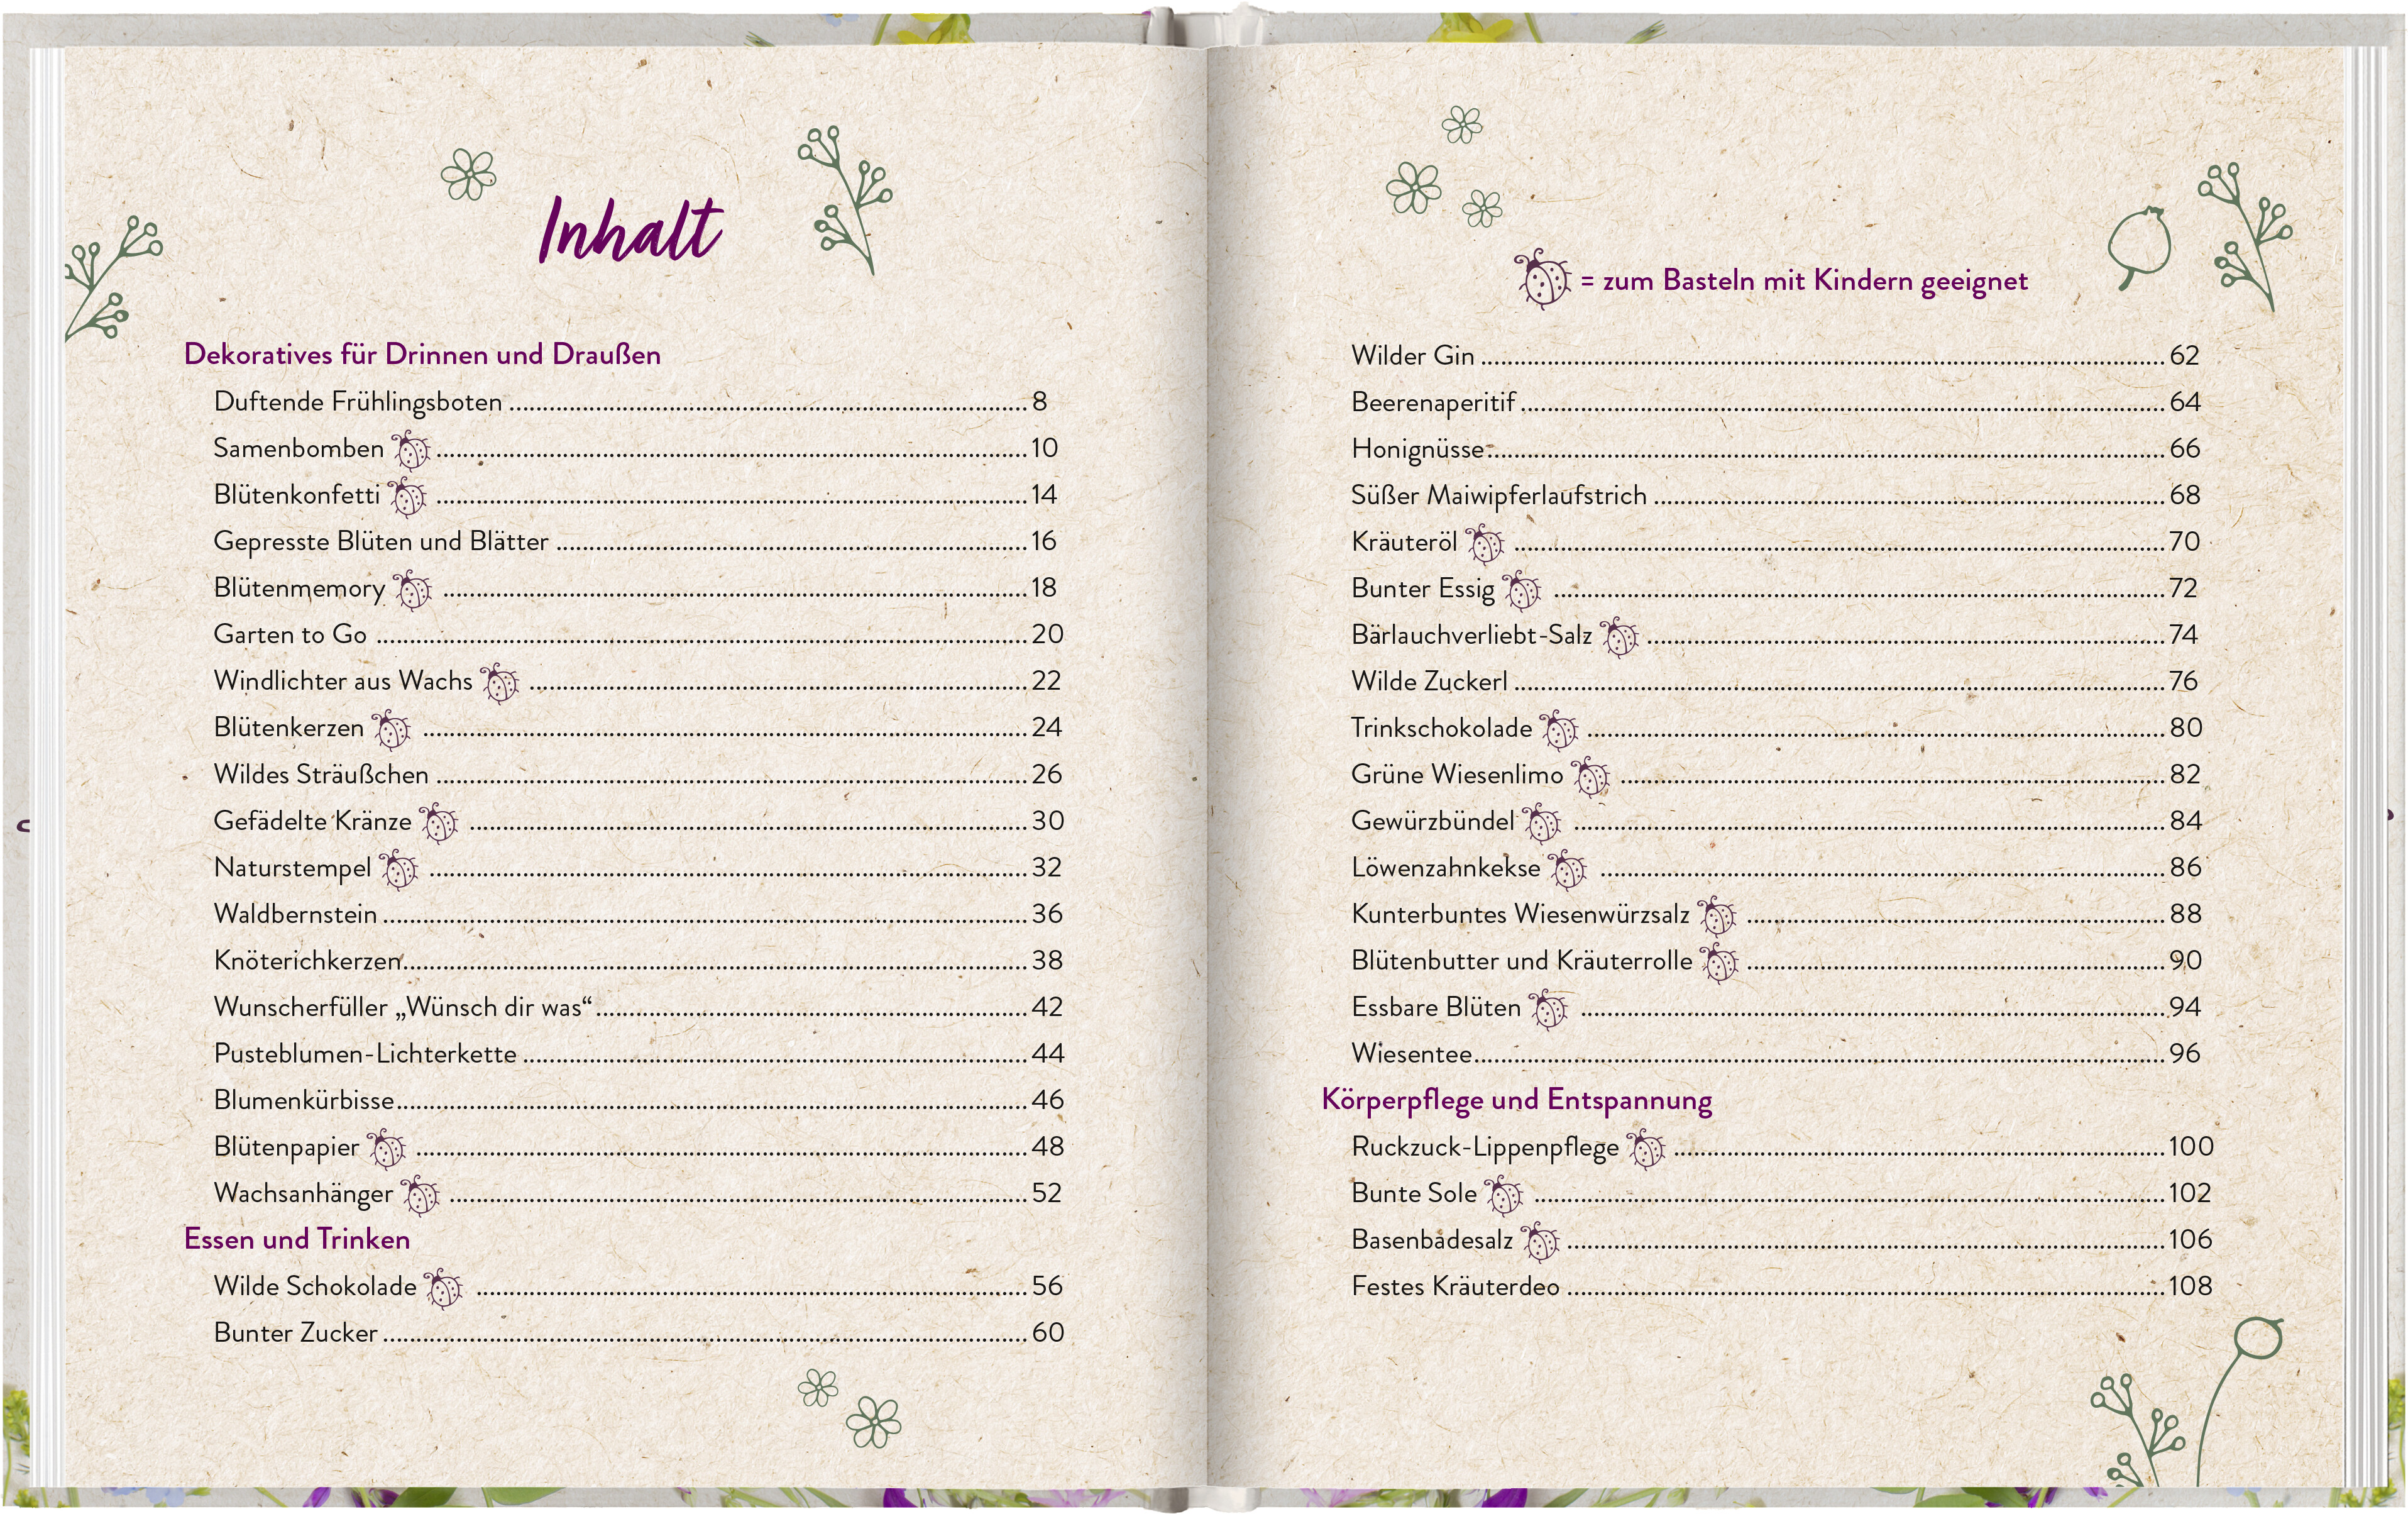 Inhalt
Dekoratives für Drinnen und Draußen
Duftende Frühlingsboten ........ 8
Samenbomben ........ 10
Blütenkonfetti ........ 14
Gepresste Blüten und Blätter ........ 16
Blütenmemory ........ 18
Garten to Go ........ 20
Windlichter aus Wachs ........ 22
Blütenkerzen ........ 24
Wildes Sträußchen ........ 26
Gefädelte Kränze ........ 30
Naturstempel ........ 32
Waldbernstein ........ 36
Knöterichkerzen ........ 38
Wunscherfüller „Wünsch dir was“ ........ 42
Pusteblumen-Lichterkette ........ 44
Blumenkürbisse ........ 46
Blütenpapier ........ 48
Wachsanhänger ........ 52
Essen und Trinken
Wilde Schokolade ........ 56
Bunter Zucker ........ 60
= zum Basteln mit Kindern geeignet
Wilder Gin ........ 62
Beerenaperitif ........ 64
Honignüsse ........ 66
Süßer Maiwipferlaufstrich ........ 68
Kräuteröl ........ 70
Bunter Essig ........ 72
Bärlauchverliebt-Salz ........ 74
Wilde Zuckerl ........ 76
Trinkschokolade ........ 80
Grüne Wiesenlimo ........ 82
Gewürzbündel ........ 84
Löwenzahnkekse ........ 86
Kunterbuntes Wiesenwürzsalz ........ 88
Blütenbutter und Kräuterrolle ........ 90
Essbare Blüten ........ 94
Wiesentee ........ 96
Körperpflege und Entspannung
Ruckzuck-Lippenpflege ........ 100
Bunte Sole ........ 102
Basenbadesalz ........ 106
Festes Kräuterdeo ........ 108